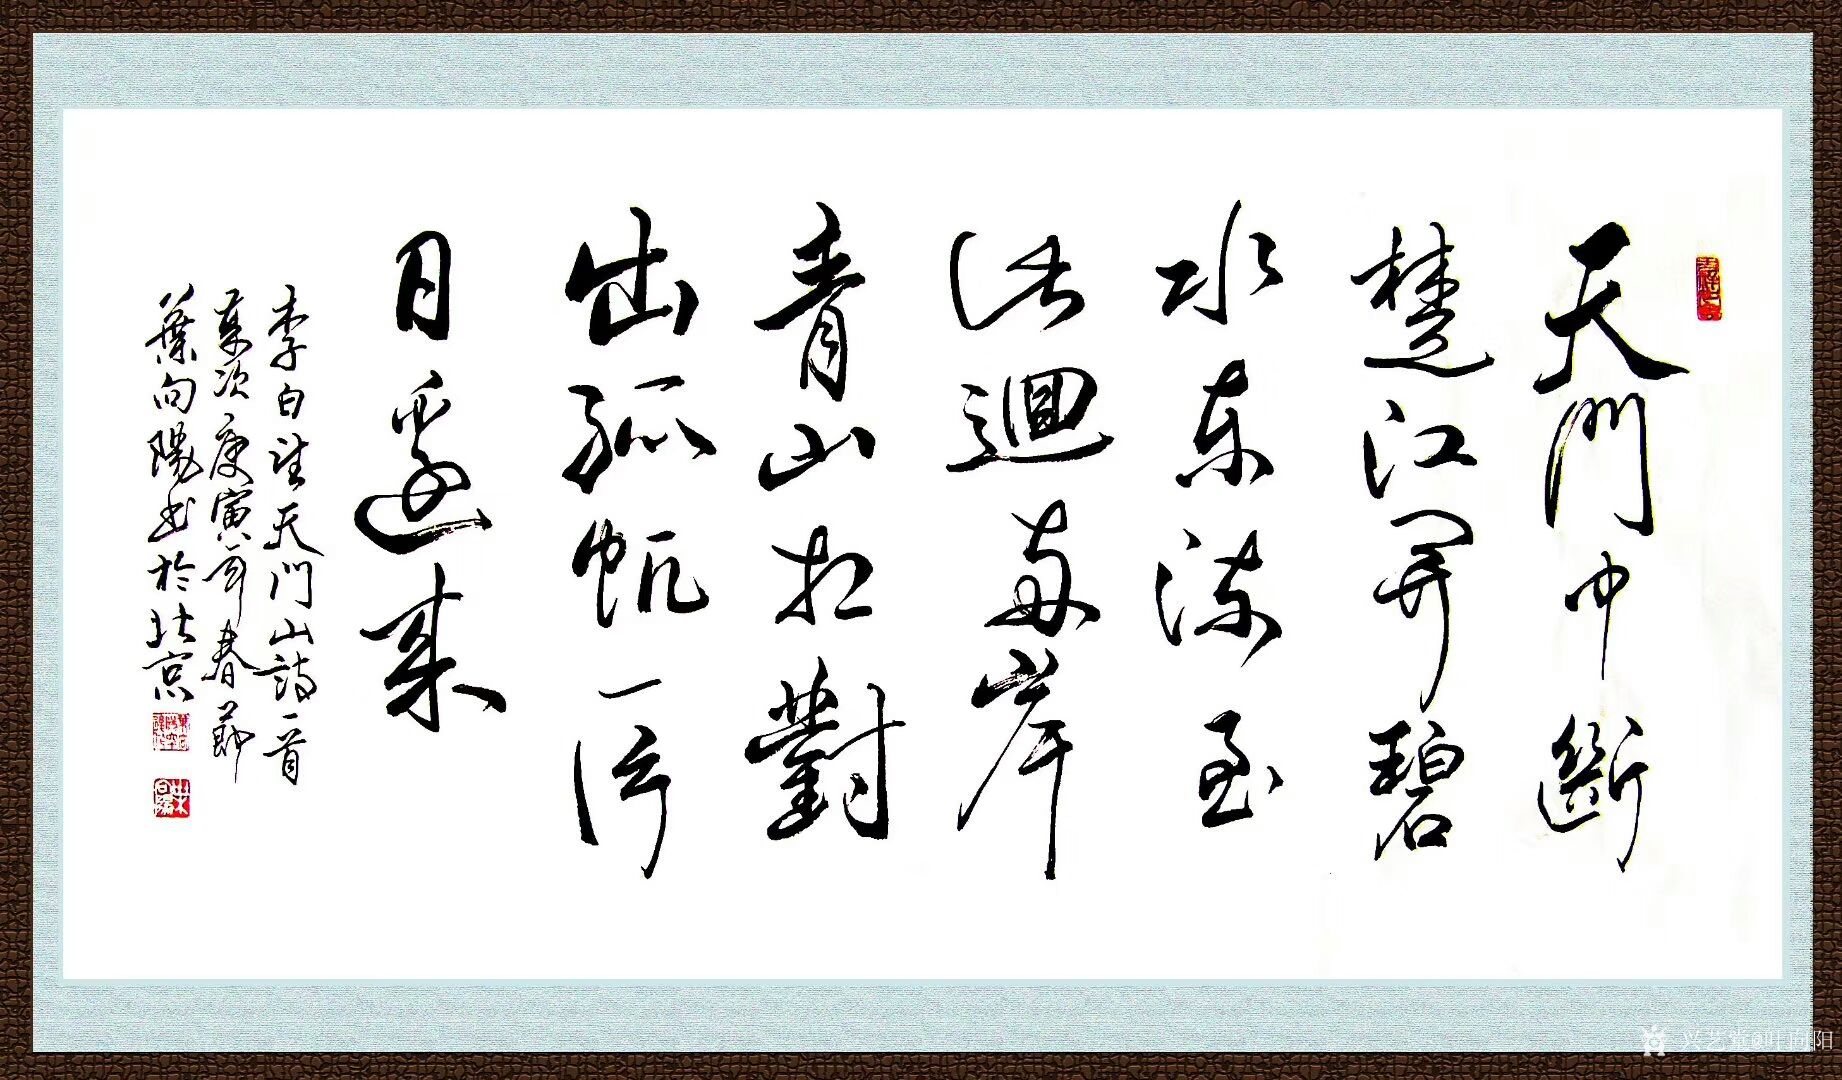 天門中斷
楚江開碧
水东流至
此迴两岸
青山相對
出孤帆一片
日邊来
李白望天門山詩一首
歲次庚寅年春節
葉向陽书於北京
兴艺堂@叶向阳